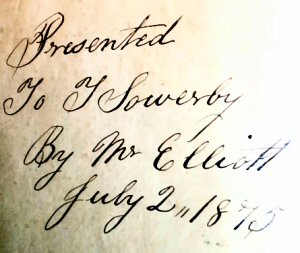 Presented
To T Sowerby
By Mr Elliott
July 2,, 1875